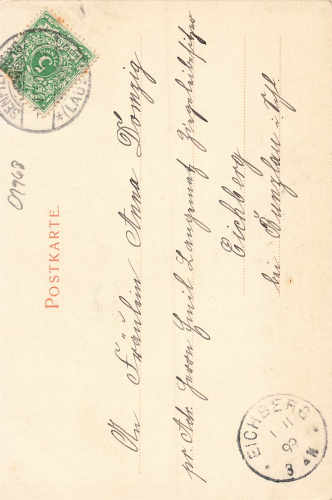 POSTKARTE.
An Fräulein Anna Domzig
pr. Adr. Herrn Emil Langematz Ziegeleibesitzer
Eichberg
bei Bunzlau i/Schl.
5
SENF
(LAU
EICHBERG
1 11
99
3 N
01968